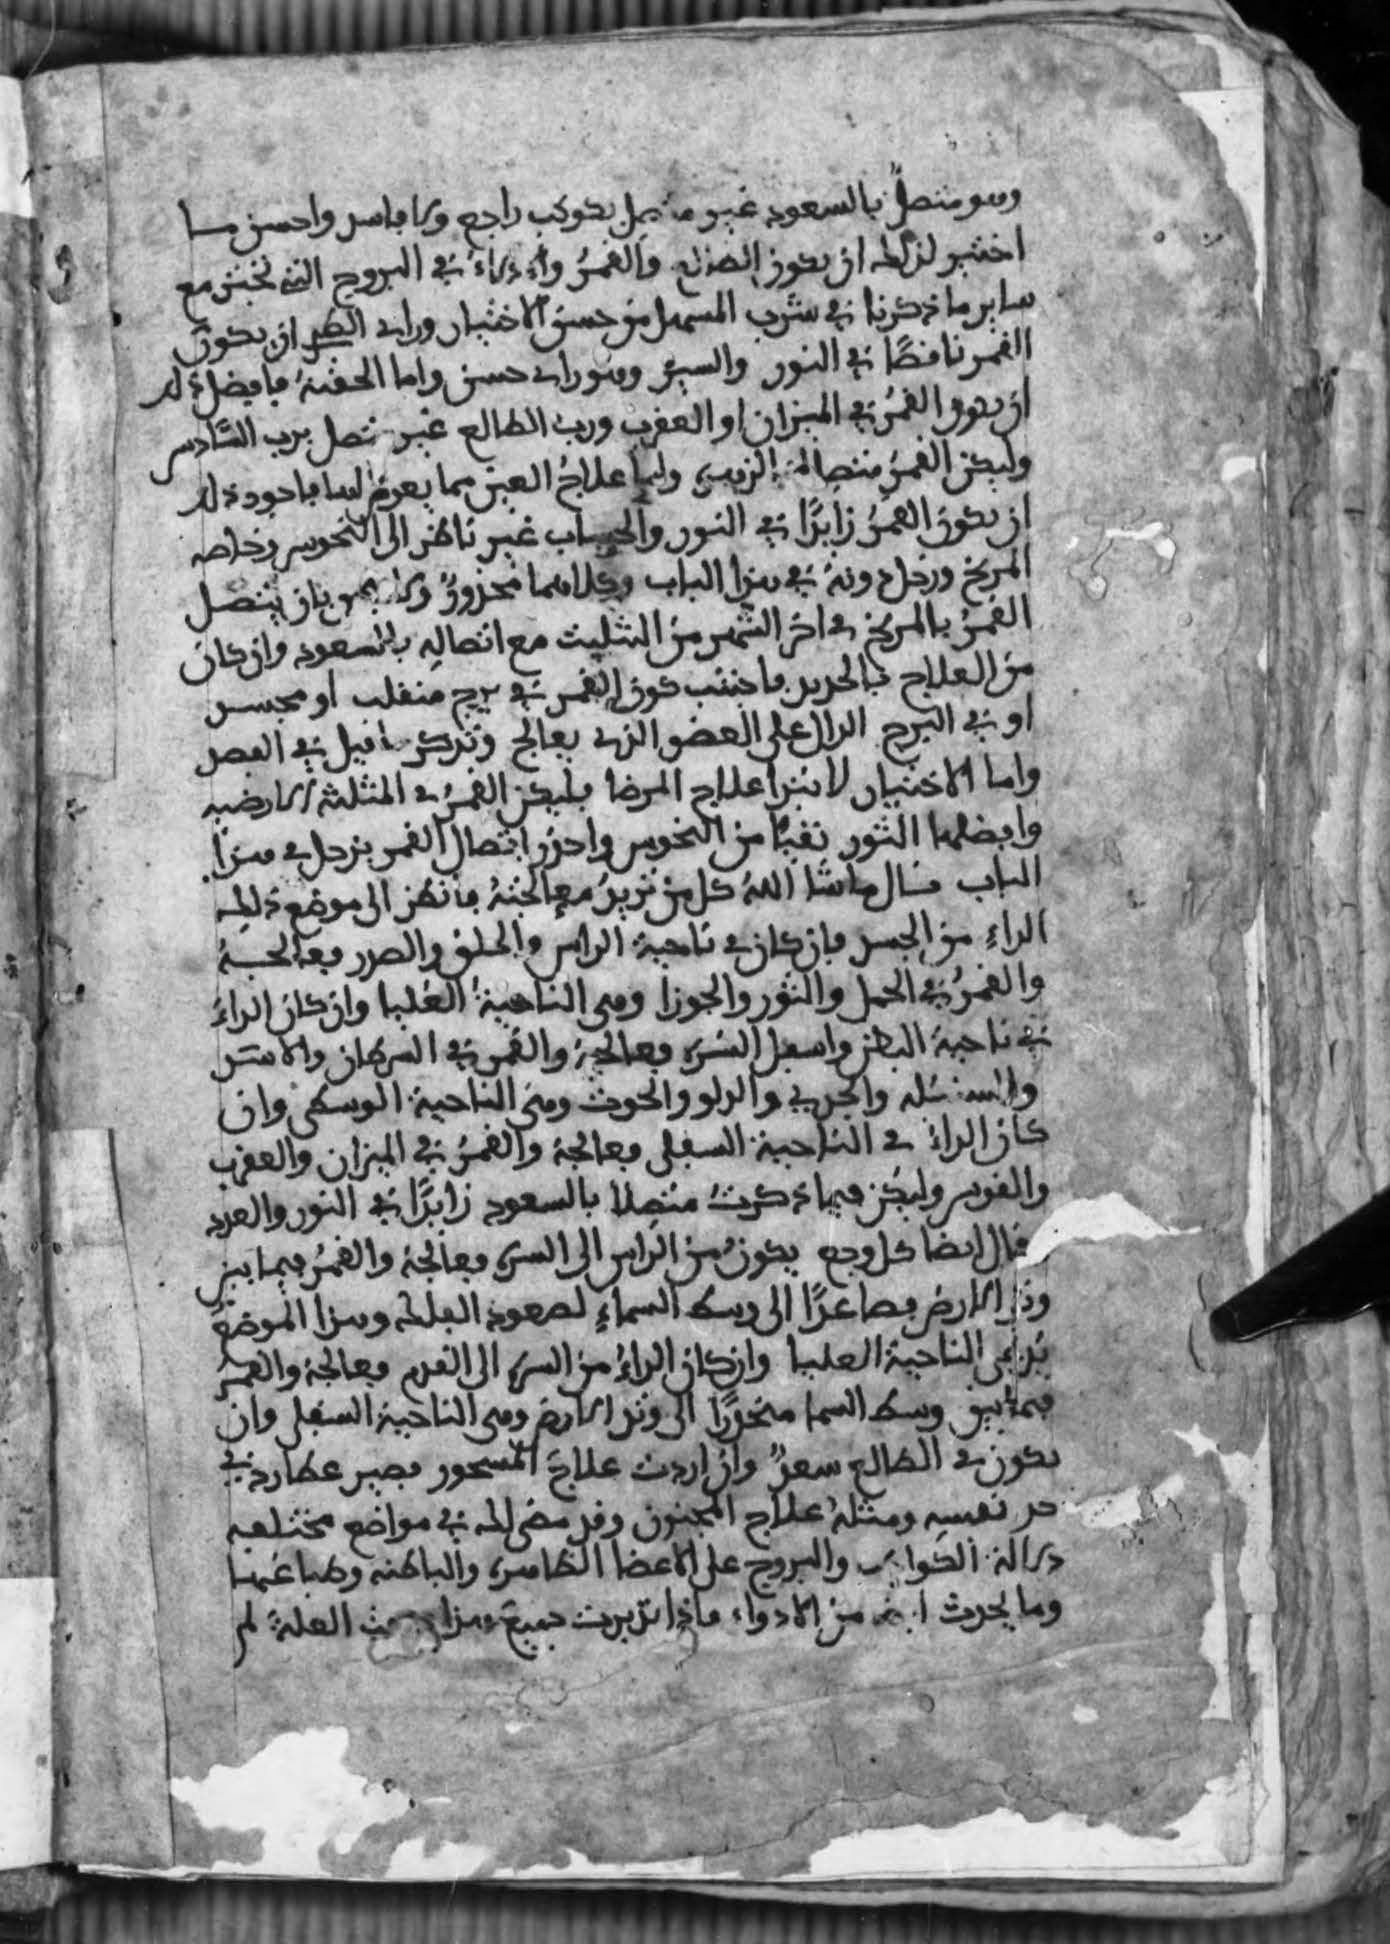 وهو متصلً بالسعود غير متصل بكوكب راجع ولا فاسد واحسن ما
اختير لذلك ان يكون الطالع والقمرُ في البروج التي تجتر مع
ساير ما ذكرنا في شرب المسهل من حسن الاختيار وراى الطبر ان يكون
القمر ناقصًا في النور والسير وهو راى حسن واما الحقنة فافضلهُ له
ان يكون القمرُ في الميزان او العقرب وربُ الطالع غير متصل برب السَّادس
وليكن القمرُ متصلا الزهره واما علاج العين مما يعرض لها فاجوده له
ان يكون القمرُ زايدًا في النور والحساب غير ناظر الى النحوس وخاصه
المريخ وزحل دونهُ في هذا الباب وكلاهما محذورٌ ولا بان يتصل
القمرُ بالمريخ في اخر الشهر من التثليث مع اتصاله بالسعود وان كان
من العلاج بالحديد فاجتنب كون القمر في برج منقلب او مجسد
او في البرج الدال على العضو الذي يعالج وتذكر ما قيل في الفصد
واما الاختيار لابتدا علاج المرضا فليكن القمرُ في المثلثة الارضيه
وافضلها الثور نقيًّا من النحوس واحذر اتصال القمر بزحل في هذا
الباب قال ماشا اللهُ كل من تريدُ معالجتهُ فانظر الى موضع ذلك
الداءِ من الجسد فان كان في ناحية الراس والحلق والصدر فعالجهُ
والقمرُ في الحمل والثور والجوزا وهى الناحيةُ العُليا وان كان الداءُ
في ناحية البطن واسفل السُّره فعالجهُ والقمر في السرطان والاسد
والسنبله والجدي والدلو والحوت وهي الناحية الوسطى وان
كان الداءُ في النَّاحية السفلى فعالجهُ والقمرُ في الميزان والعقرب
والقوس وليكن فيما ذكرتُ متصلا بالسعود زايدًا في النور والعدد
قال ايضا كل وجع يكونُ من الراس الى السره فعالجهُ والقمرُ فيما بين
وتد الارض صاعدًا الى وسط السماءِ لصعود الفلك وهذا الموضعُ
يدعى الناحية العليا وان كان الداءُ من السره الى القدم فعالجهُ والقمرُ
فيما بين وسط السما منحدرًا الى وتد الارض وهى الناحية السفلى وان
يكون في الطالع سعدٌ وان اردت علاج المسحور فصير عطارد في
حد نفسه ومثلهُ علاج المجنون وقد مضى لك في مواضع مختلفه
دلالة الكواكب والبروج على الاعضا الظاهره والباطنه وطباعها
وما يحدث من الادواء فاذا تدبرت جميع هذا العلةُ لم